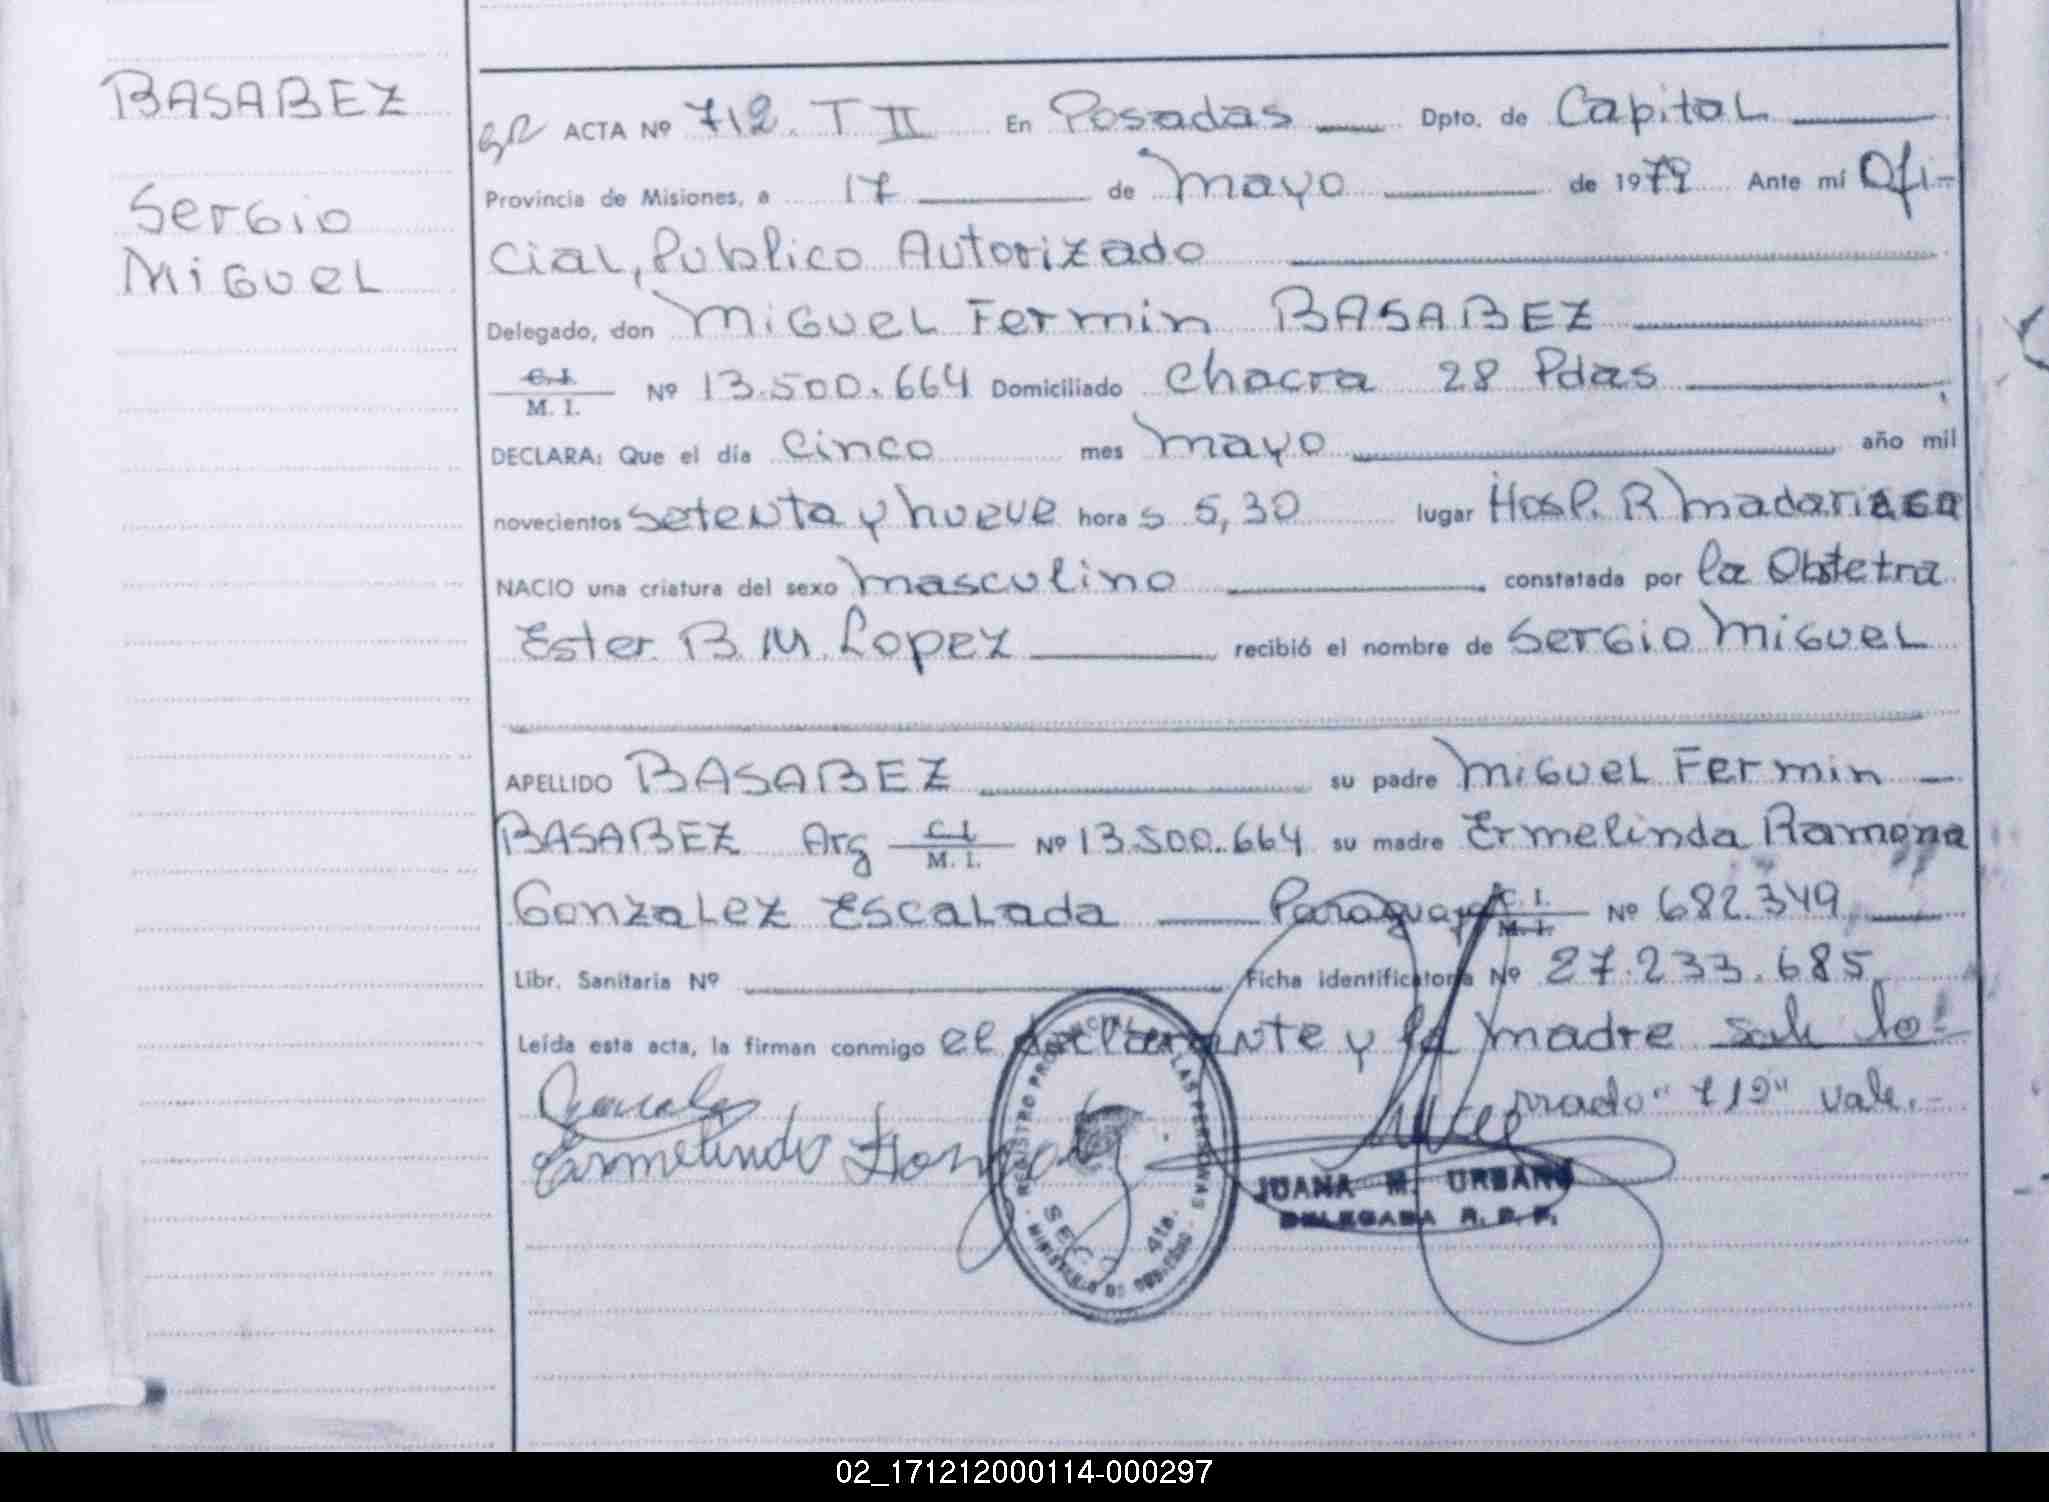 BASABEZ
Sergio
Miguel
ACTA Nº 712. T II En Posadas Dpto. de Capital
Provincia de Misiones, a 17 de mayo de 1979 Ante mí Ofi-
cial, Publico Autorizado
Delegado, don Miguel Fermin BASABEZ
C.I.
M. I. Nº 13.500.664 Domiciliado Chacra 28 Pdas
DECLARA: Que el día cinco mes mayo año mil
novecientos setenta y nueve hora s 5,30 lugar Hosp. R Madariaga
NACIO una criatura del sexo masculino constatada por la Obstetra
Ester B. M. Lopez recibió el nombre de Sergio Miguel
APELLIDO BASABEZ su padre Miguel Fermin
BASABEZ Arg C.I.
M. I. Nº 13.500.664 su madre Ermelinda Ramona
Gonzalez Escalada Paraguaya C. I.
M. I. Nº 682.349
Libr. Sanitaria Nº Ficha identificatoria Nº 27.233.685
Leída esta acta, la firman conmigo el declarante y la madre
rrado "712" vale.-
Ermelinda
REGISTRO PROVINCIAL DE LAS PERSONAS
SECC. 4ta.
MINISTERIO DE GOBIERNO
JUANA M. URBANO
DELEGADA R. P. P.
02_171212000114-000297